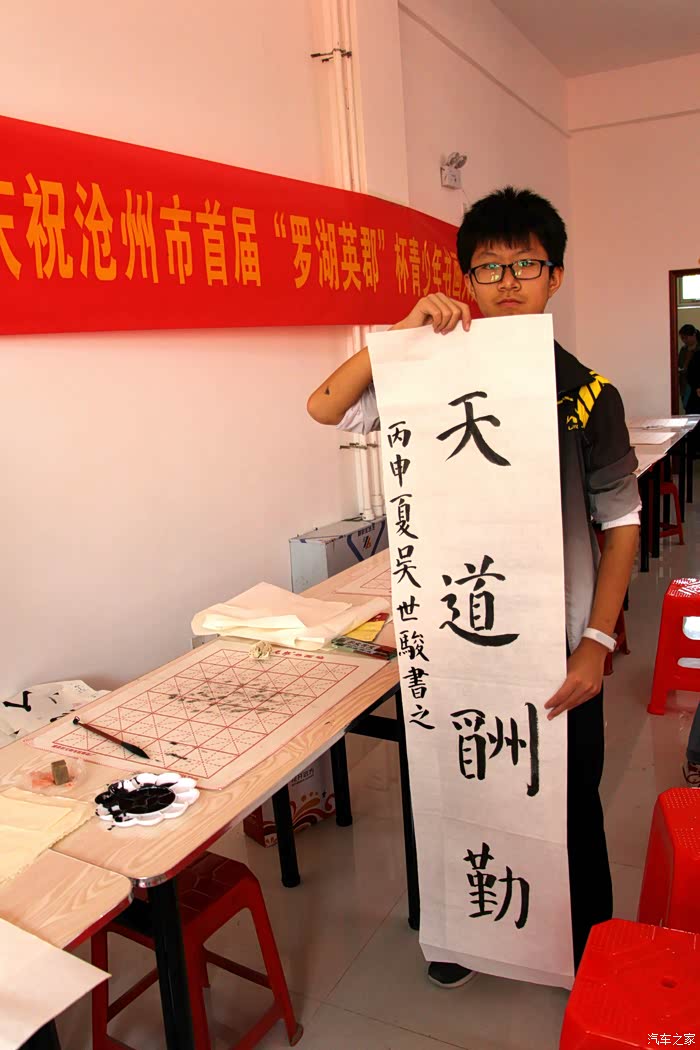 庆祝沧州市首届“罗湖英郡”杯青少年书画大
天道酬勤
丙申夏吴世駿書之
汽车之家